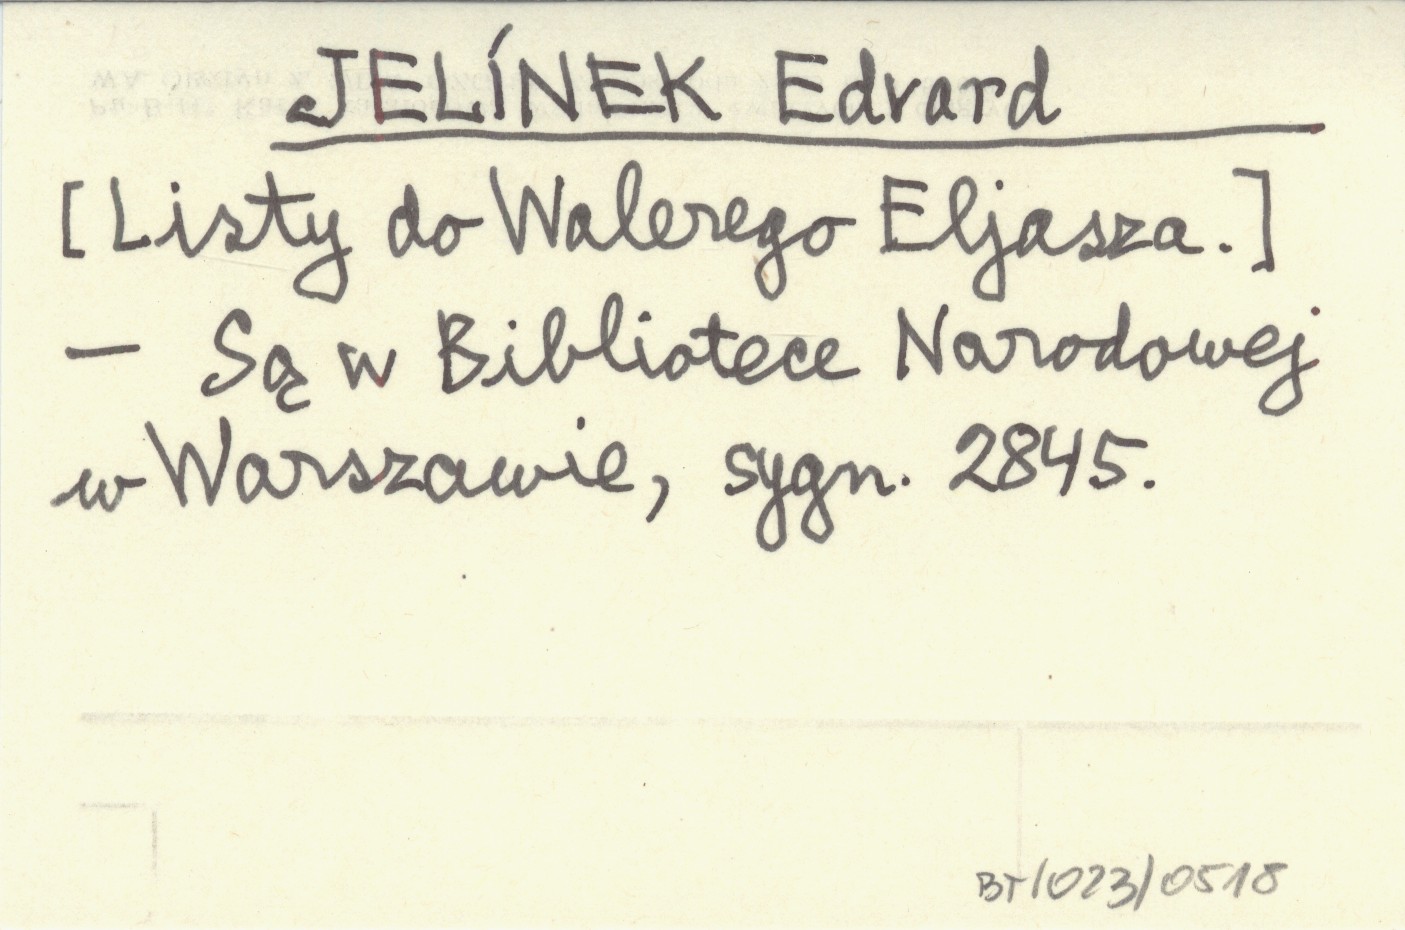 JELÍNEK Edvard
[Listy do Walerego Eljasza.]
— Są w Bibliotece Narodowej
w Warszawie, sygn. 2845.
BT/023/0518